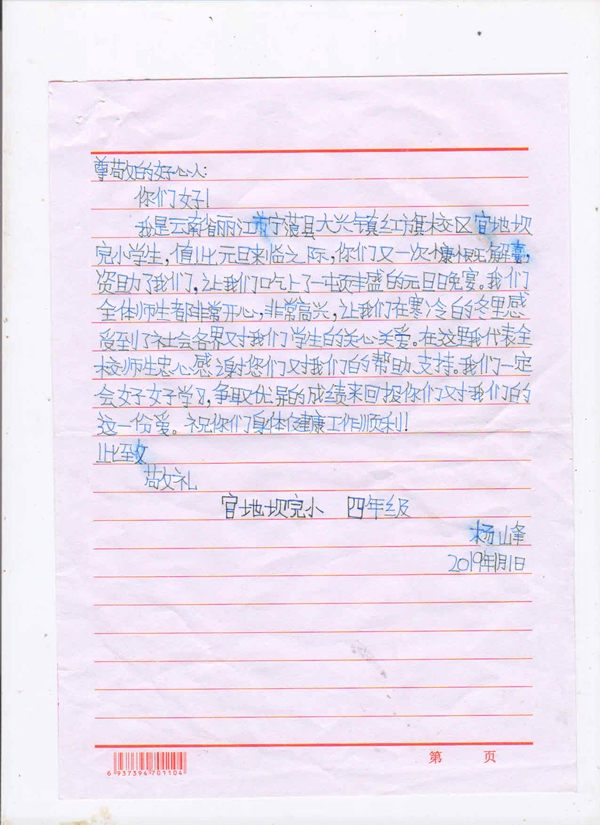 尊敬的好心人:
你们好!
我是云南省丽江市宁蒗县大兴镇红旗校区官地坝
完小学生,值此元旦来临之际,你们又一次慷慨解囊,
资助了我们,让我们吃上了一顿丰盛的元旦晚宴。我们
全体师生都非常开心,非常高兴,让我们在寒冷的冬里感
受到了社会各界对我们学生的关心关爱。在这里我代表全
校师生忠心感谢您们对我们的帮助支持。我们一定
会好好学习,争取优异的成绩来回报你们对我们的
这一份爱。祝你们身体健康工作顺利!
此致
敬礼
官地坝完小 四年级
杨峰
2019年1月1日
第 页
6937394701104